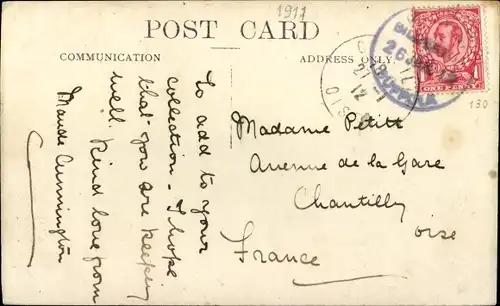 1911
POST CARD
COMMUNICATION
ADDRESS ONLY.
26
12
ONE PENNY
1
130
To add to your
collection - I hope
that you are keeping
well. Kind love from
Maude Cunnington
Madame Petitt
Avenue de la Gare
Chantilly
oise
France